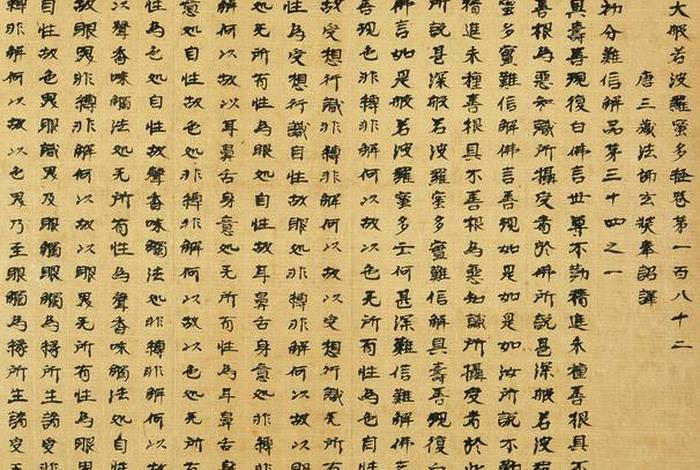 大般若波羅蜜多經卷第一百八十二
唐三藏法師玄奘奉詔譯
初分難信解品第三十四之一
具壽善現復白佛言世尊不勤精進未種善根具不
善根為惡知識所攝受者於佛所說甚深般若波羅
多蜜難信解佛言善現如是如是如汝所說不勤
精進未種善根具不善根為惡知識所攝受者於此
所說甚深般若波羅蜜多蜜難信解具壽善現復白
佛言如是般若波羅蜜多云何甚深難信難解佛
善現色非縛非解何以故色无所有性為色自性
故受想行識非縛非解何以故受想行識无所有
性為受想行識自性故眼処非縛非解何以故眼
処无所有性為眼処自性故耳鼻舌身意処非縛
解何以故耳鼻舌身意処无所有性為耳鼻舌
意処自性故色処非縛非解何以故色処无所有
性為色処自性故聲香味觸法処非縛非解何以
以聲香味觸法処无所有性為聲香味觸法処自
故眼界非縛非解何以故眼界无所有性為眼界
自性故色界眼識界及眼觸眼觸為緣所生諸受非
縛非解何以故色界乃至眼觸為緣所生諸受无